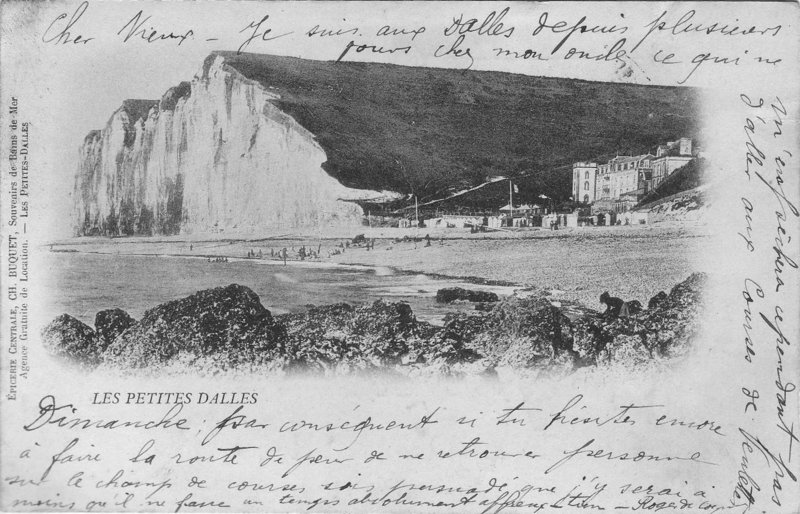 Cher Vieux _ Je suis aux Dalles depuis plusieurs
jours chez mon oncle ce qui ne
m'empêchera cependant pas
d'aller aux Courses de
Dimanche, par conséquent si tu hésites encore
à faire la route de peur de ne retrouver personne
sur le champ de courses sois persuadé que j'y serai à
moins qu'il ne fasse un temps absolument affreux _
LES PETITES DALLES
ÉPICERIE CENTRALE, CH. BUQUET, Souvenirs de Bains de Mer
Agence Gratuite de Location. — LES PETITES-DALLES